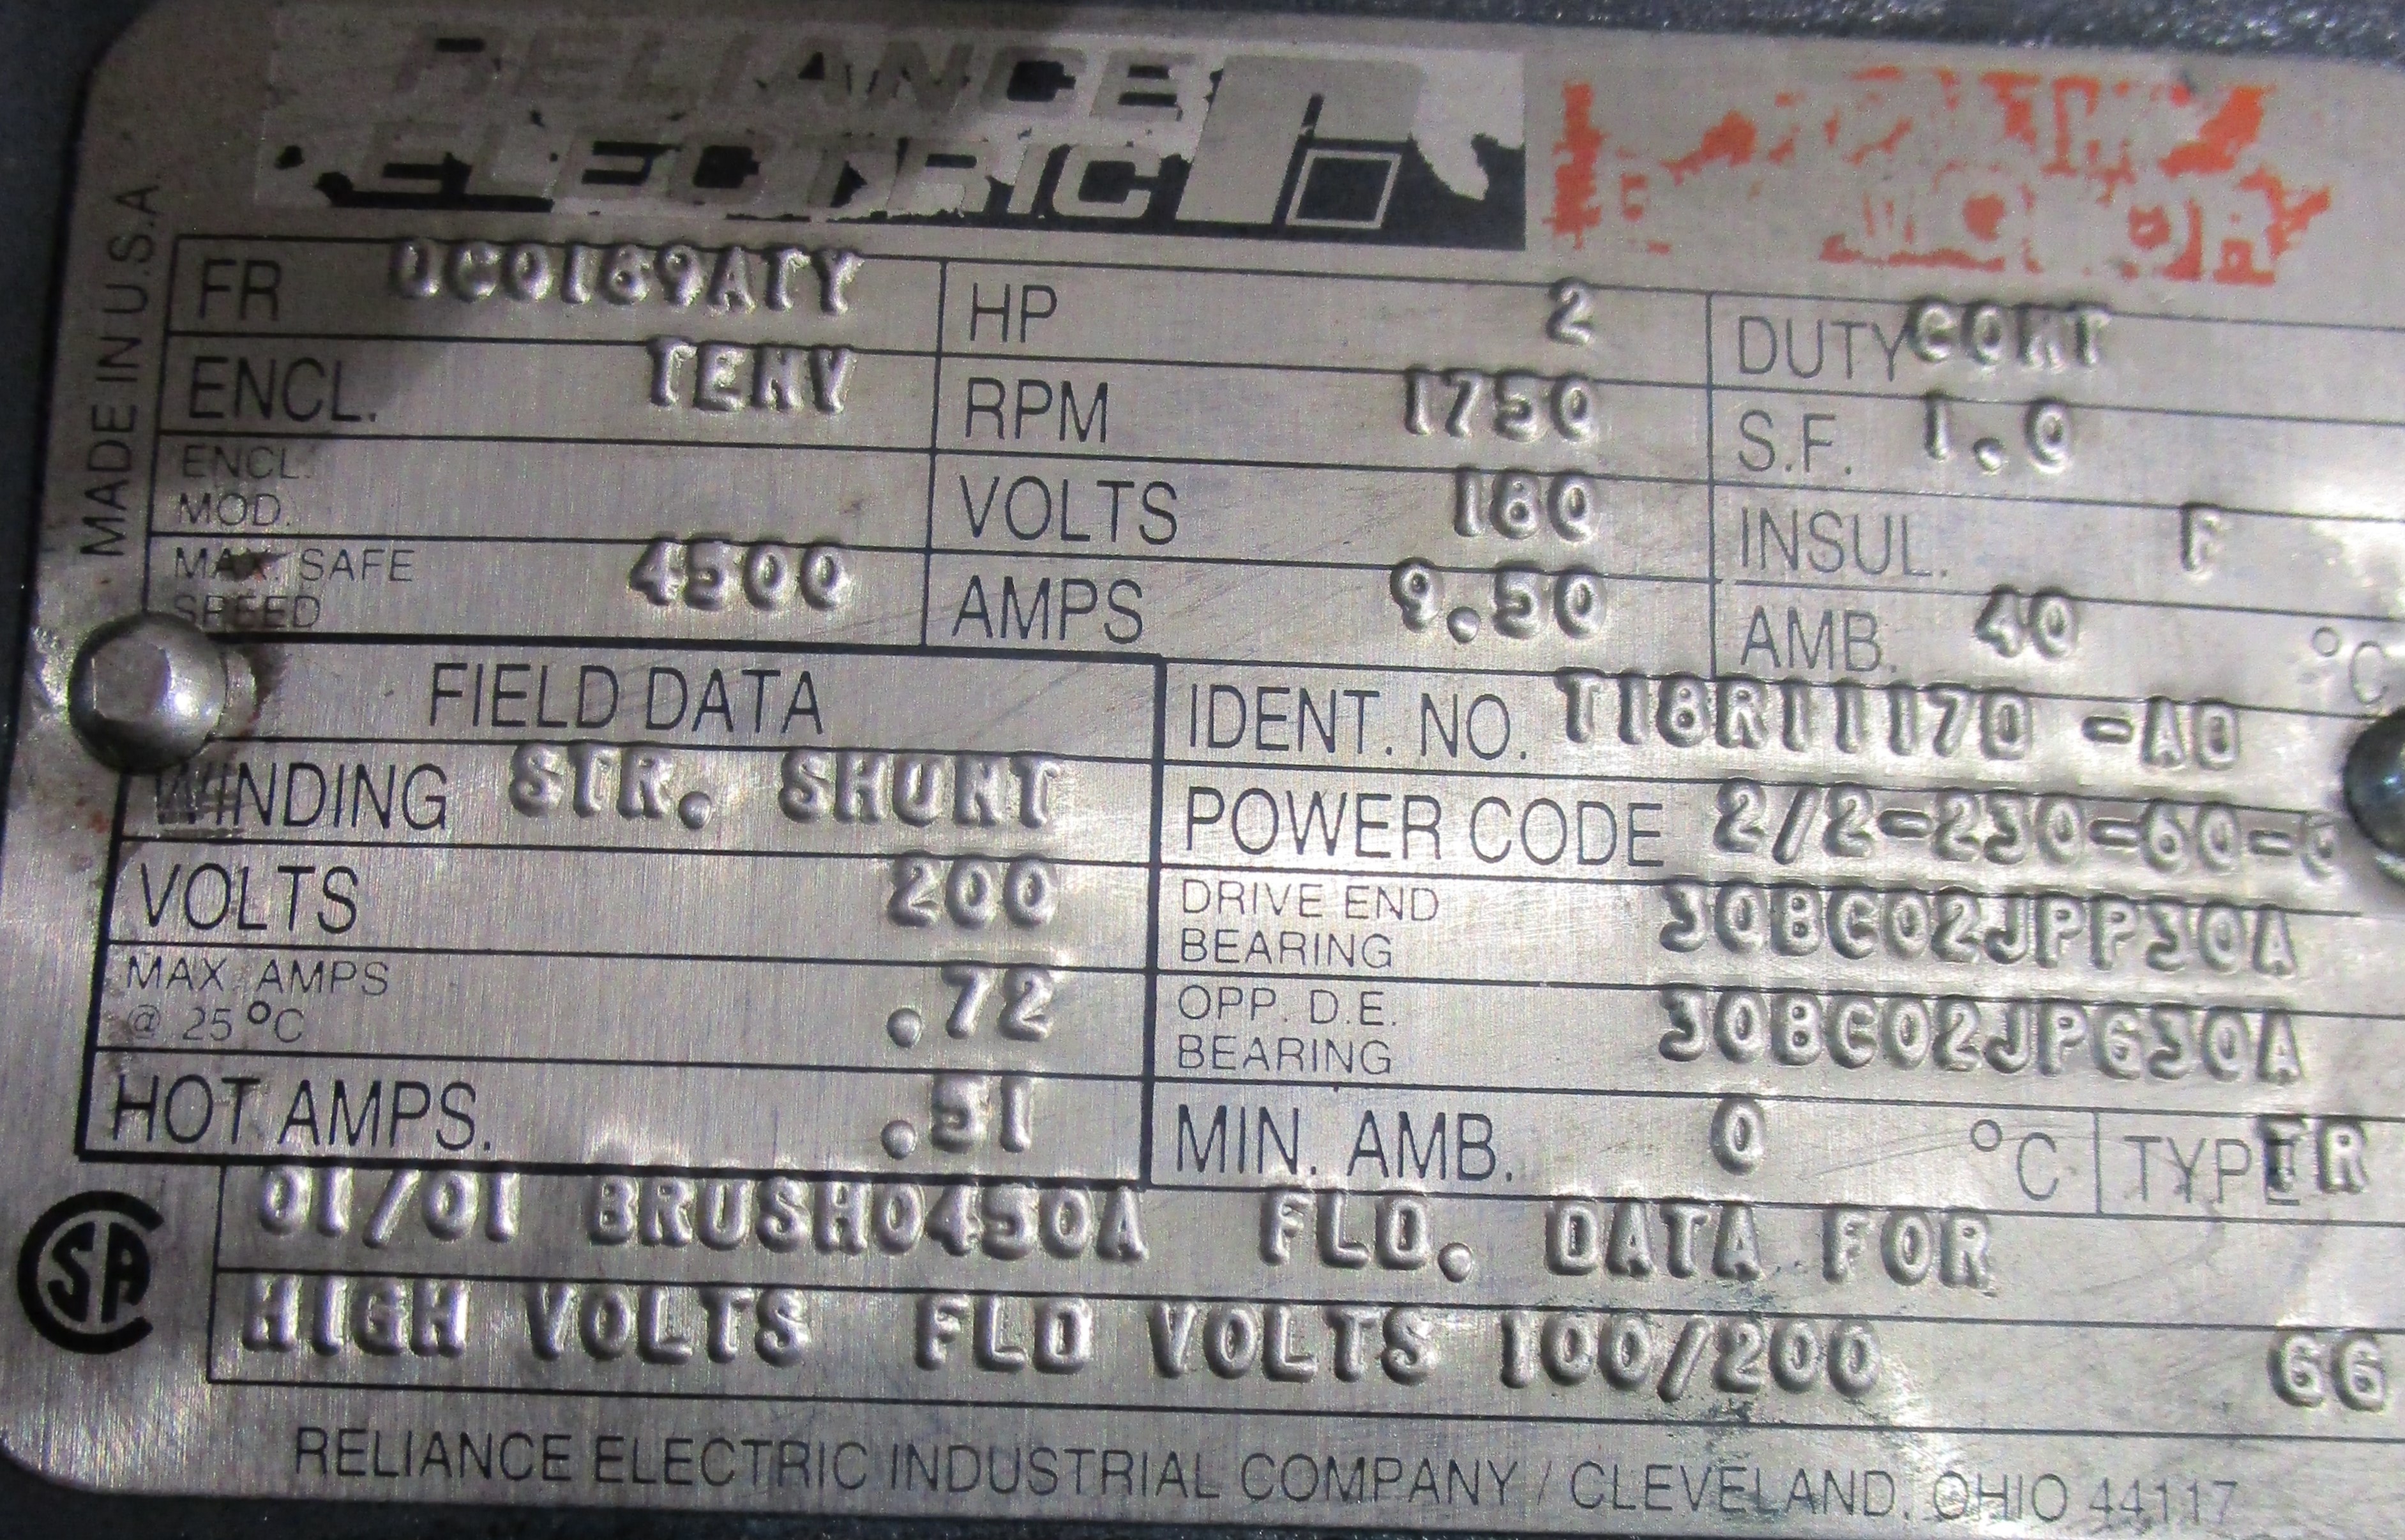 RELIANCE
ELECTRIC
MOTOR
MADE IN U.S.A.
FR DC0189ATY HP 2 DUTY CONT
ENCL. TENV RPM 1750 S.F. 1.0
ENCL. MOD. VOLTS 180 INSUL. F
MAX. SAFE SPEED 4500 AMPS 9.50 AMB. 40 °C
FIELD DATA IDENT. NO. T18R1117D -AD
WINDING STR. SHUNT POWER CODE 2/2-230-60-
VOLTS 200 DRIVE END BEARING 30BC02JPP30A
MAX. AMPS @ 25 °C .72 OPP. D.E. BEARING 30BC02JPG30A
HOT AMPS. .51 MIN. AMB. 0 °C TYPE TR
01/01 BRUSH0450A FLD. DATA FOR
SA
HIGH VOLTS FLD VOLTS 100/200 66
RELIANCE ELECTRIC INDUSTRIAL COMPANY / CLEVELAND, OHIO 44117